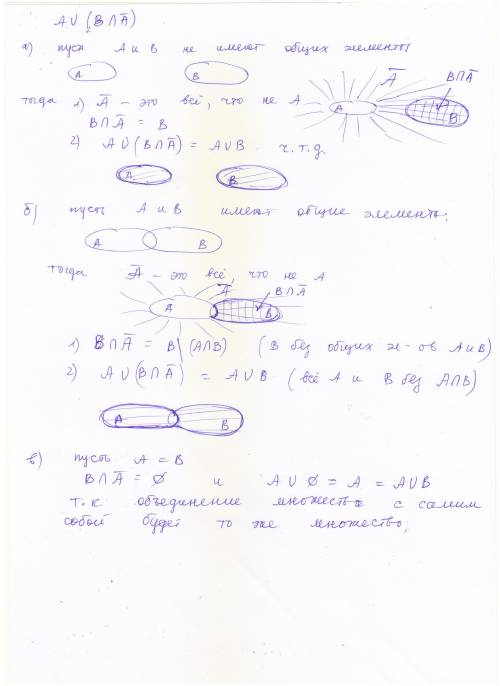 A∪(B∩A̅)
а) пусть A и B не имеют общих элементов
A B A̅ B∩A̅
A B
тогда 1) A̅ – это всё, что не A
B∩A̅ = B
2) A∪(B∩A̅) = A∪B ч.т.д.
A B
б) пусть A и B имеют общие элементы:
A B
Тогда A̅ – это всё, что не A
A̅ B∩A̅
A B
1) B∩A̅ = B\(A∩B) (B без общих эл-ов A и B)
2) A∪(B∩A̅) = A∪B (всё A и B без A∩B)
A B
в) пусть A = B
B∩A̅ = ∅ и A∪∅ = A = A∪B
т.к объединение множества с самим
собой будет то же множество.